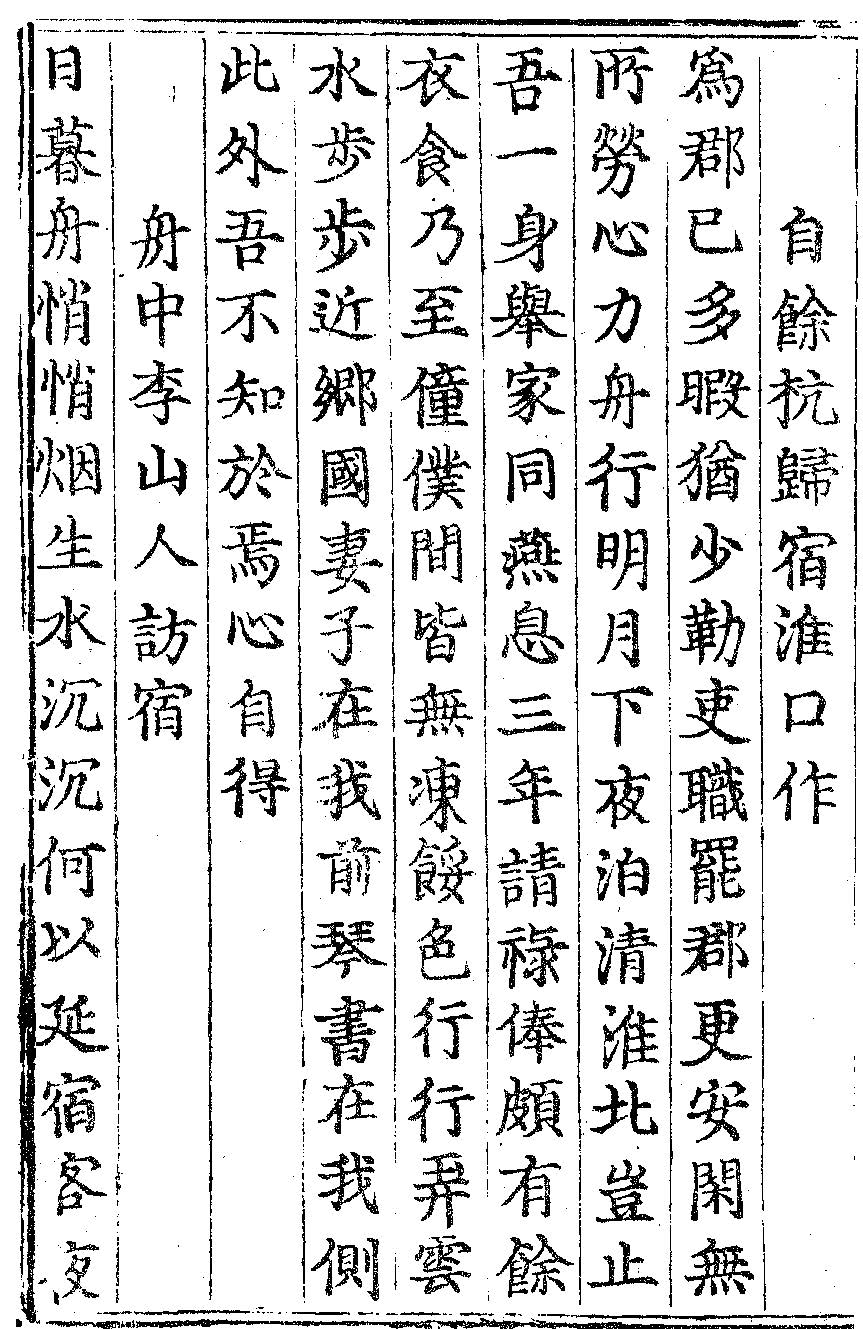 自餘杭歸宿淮口作
爲郡已多暇猶少勤吏職罷郡更安閑無
所勞心力舟行明月下夜泊清淮北豈止
吾一身舉家同燕息三年請祿俸頗有餘
衣食乃至僮僕間皆無凍餒色行行弄雲
水步步近鄉國妻子在我前琴書在我側
此外吾不知於焉心自得
舟中李山人訪宿
日暮舟悄悄烟生水沉沉何以延宿客夜